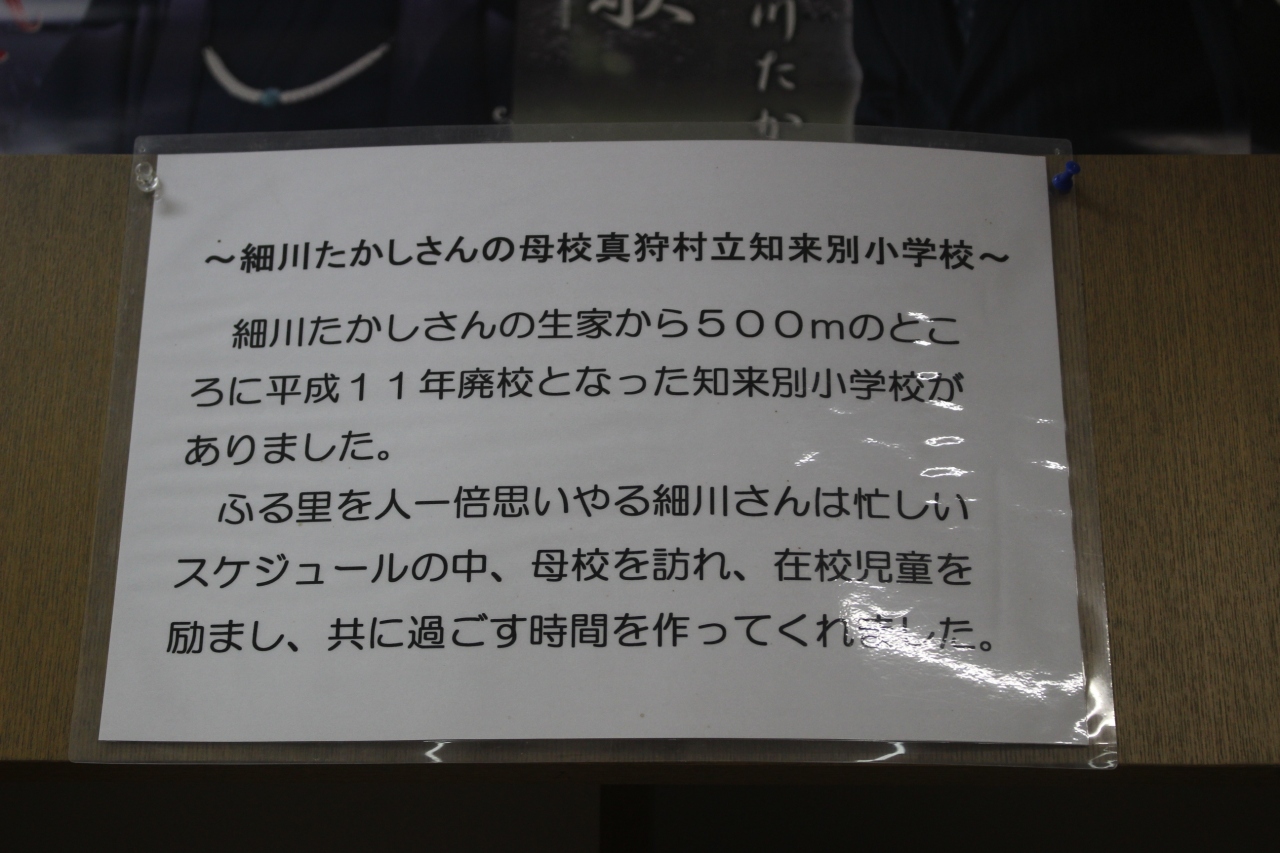 歌
川たか
～細川たかしさんの母校真狩村立知来別小学校～
細川たかしさんの生家から５００ｍのとこ
ろに平成１１年廃校となった知来別小学校が
ありました。
ふる里を人一倍思いやる細川さんは忙しい
スケジュールの中、母校を訪れ、在校児童を
励まし、共に過ごす時間を作ってくれました。